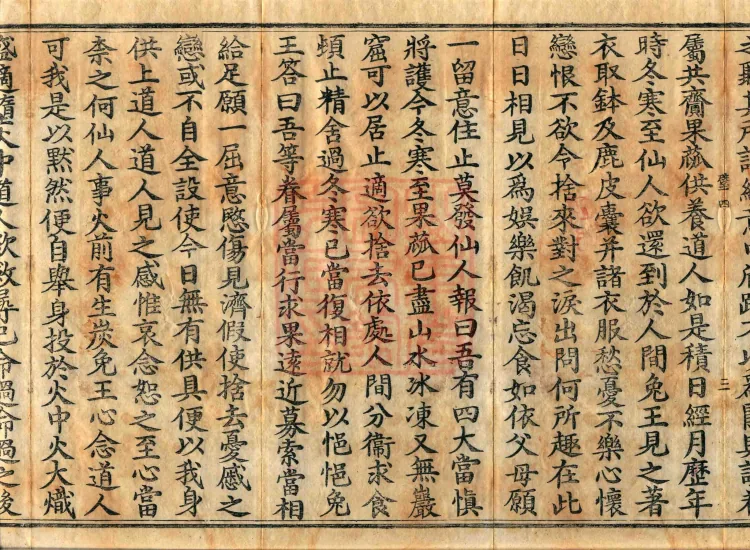 屬共齎果蓏供養道人如是積日經月歷年
三
時冬寒至仙人欲還到於人間兔王見之著
衣取鉢及鹿皮囊并諸衣服愁憂不樂心懷
戀恨不欲令捨來對之淚出問何所趣在此
日日相見以爲娛樂飢渴忘食如依父母願
一留意住止莫發仙人報曰吾有四大當慎
將護今冬寒至果蓏已盡山水冰凍又無巖
窟可以居止適欲捨去依處人間分衞求食
頓止精舍過冬寒已當復相就勿以悒悒兔
王答曰吾等眷屬當行求果遠近募索當相
給足願一屈意愍傷見濟假使捨去憂慼之
戀或不自全設使今日無有供具便以我身
供上道人道人見之感惟哀念恕之至心當
柰之何仙人事火前有生炭兔王心念道人
可我是以默然便自舉身投於火中火大熾
盛適墮火中道人欲救尋已命過命過之後